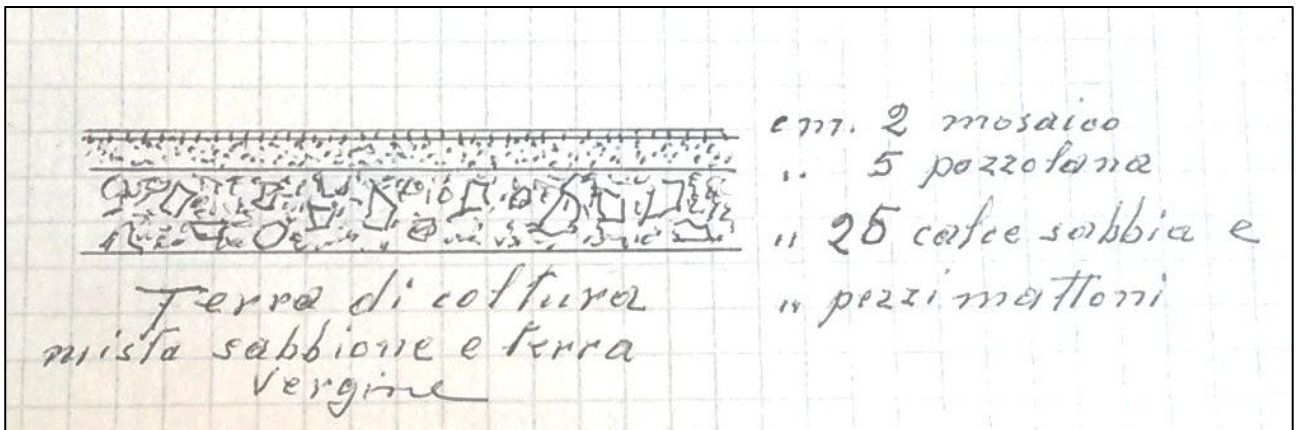 cm. 2 mosaico
" 5 pozzolana
" 25 calce sabbia e
" pezzi mattoni
Terra di coltura
mista sabbione e terra
vergine